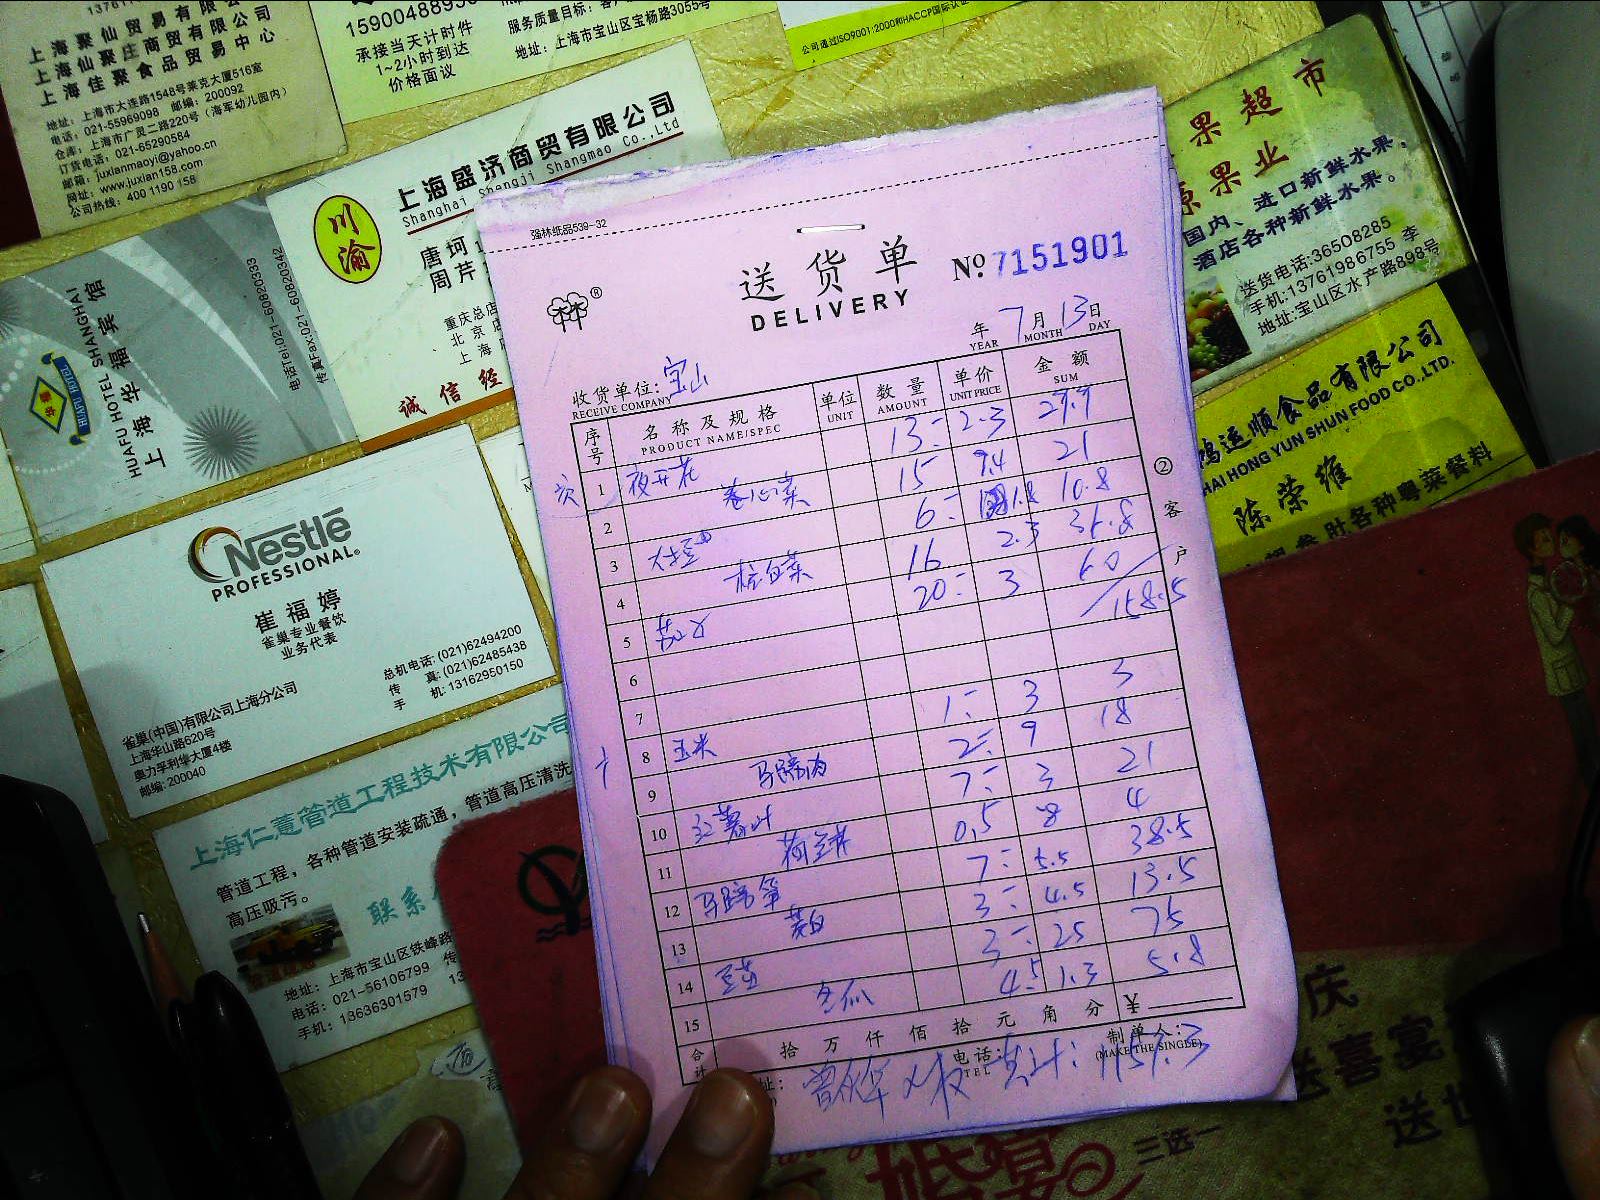 上海聚仙贸易有限公司
上海仙聚庄商贸有限公司
上海佳聚食品贸易中心
地址：上海市大连路1548号莱克大厦516室
电话：021-55969098 邮编：200092
仓库：上海市广灵二路220号（海军幼儿园内）
订货电话：021-65290564
邮箱：juxianmaoyi@yahoo.cn
网址：www.juxian158.com
公司热线：400 1190 158
承接当天计时件
1~2小时到达
价格面议
地址：上海市宝山区宝杨路3055号
公司通过ISO9001:2000和HACCP国际认证
川渝
上海盛济商贸有限公司
Shanghai Shangji Shangmao Co.,Ltd
唐珂
周芹
重庆总店
诚信经
HUAFU HOTEL
HUAFU HOTEL SHANGHAI
上海华福宾馆
电话Tel:021-60820333
传真Fax:021-60820342
Nestlé
PROFESSIONAL®
崔福婷
雀巢专业餐饮
业务代表
总机电话: (021)62494200
传 真: (021)62485438
手 机: 13162950150
雀巢(中国)有限公司上海分公司
上海华山路620号
奥力孚利华大厦4楼
邮编: 200040
上海仁薏管道工程技术有限公司
管道工程，各种管道安装疏通，管道高压清洗
高压吸污。
联系
地址：上海市宝山区铁峰路
电话：021-56106799 传
手机：13636301579
果超市
源果业
国内、进口新鲜水果，
酒店各种新鲜水果。
送货电话:36508285
手机:13761986755 李
地址:宝山区水产路898号
鸿运顺食品有限公司
HAI HONG YUN SHUN FOOD CO.,LTD.
陈荣维
各种粤菜餐料
强林纸品539-32
送货单
DELIVERY
No. 7151901
年 7月 13日
YEAR MONTH DAY
收货单位：宝山
RECEIVE COMPANY
序号 名称及规格 单位 数量 单价 金额
PRODUCT NAME/SPEC UNIT AMOUNT UNIT PRICE SUM
1 夜开花 13 2.3 29.9
2 卷心菜 15 1.4 21
3 6 1.8 10.8
4 杭白菜 16 2.3 36.8
5 茄子 20 3 60
158.5
6
7
8 玉米 1 3 3
9 马蹄肉 2 9 18
10 红薯叶 7 3 21
11 荷兰芹 0.5 8 4
12 马蹄笋 7 5.5 38.5
13 茭白 3 4.5 13.5
14 豆苗 3 25 75
15 冬瓜 4.5 1.3 5.8
合计 拾万仟佰拾元角分 ¥
电话: TEL
制单人:
(MAKE THE SINGLE)
② 客户
庆
送喜宴
三选一